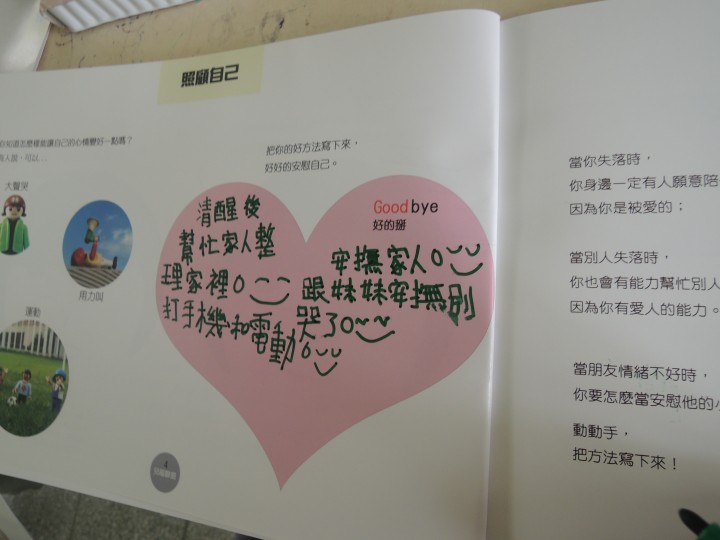 照顧自己
你知道怎麼樣能讓自己的心情變好一點嗎？
有人說，可以…
大聲哭
用力叫
運動
把你的好方法寫下來，
好好的安慰自己。
Good bye
好的掰
清醒後
幫忙家人整
理家裡。
打手機和電動。
安撫家人。
跟妹妹安撫別
哭了。~~
當你失落時，
你身邊一定有人願意陪
因為你是被愛的；
當別人失落時，
你也會有能力幫忙別人
因為你有愛人的能力。
當朋友情緒不好時，
你要怎麼當安慰他的小
動動手，
把方法寫下來！